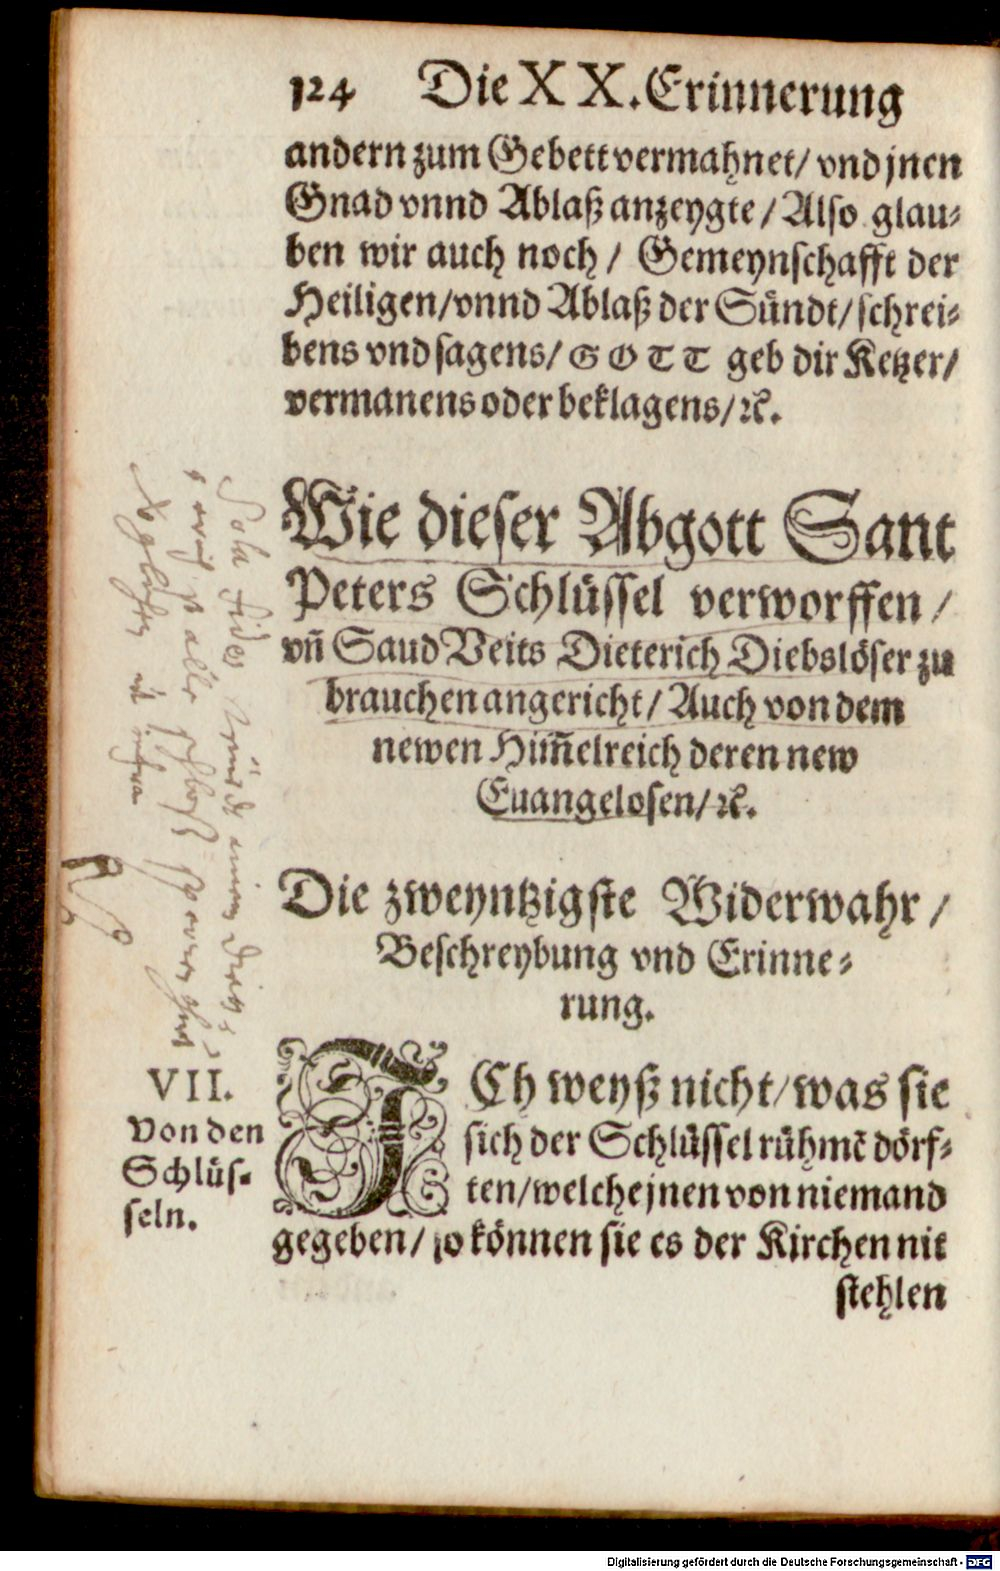 124 Die XX. Erinnerung
andern zum Gebett vermahnet/ vnd jnen
Gnad vnnd Ablaß anzeygte/ Also glau-
ben wir auch noch/ Gemeynschafft der
Heiligen/ vnnd Ablaß der Sündt/ schrei-
bens vnd sagens/ GOTT geb dir Ketzer/
vermanens oder beklagens/ ꝛc.
Wie dieser Abgott Sant
Peters Schlüssel verworffen/
vñ Saud Veits Dieterich Diebslöser zu
brauchen angericht/ Auch von dem
newen Him̃elreich deren new
Euangelosen/ ꝛc.
Die zweyntzigste Widerwahr/
Beschreybung vnd Erinne-
rung.
Sola fides
VII.
Von den
Schlüs-
seln.
ICh weyß nicht/ was sie
sich der Schlüssel rühmē dörf-
ten/ welche jnen von niemand
gegeben/ so können sie es der Kirchen nit
stehlen
Digitalisierung gefördert durch die Deutsche Forschungsgemeinschaft - DFG